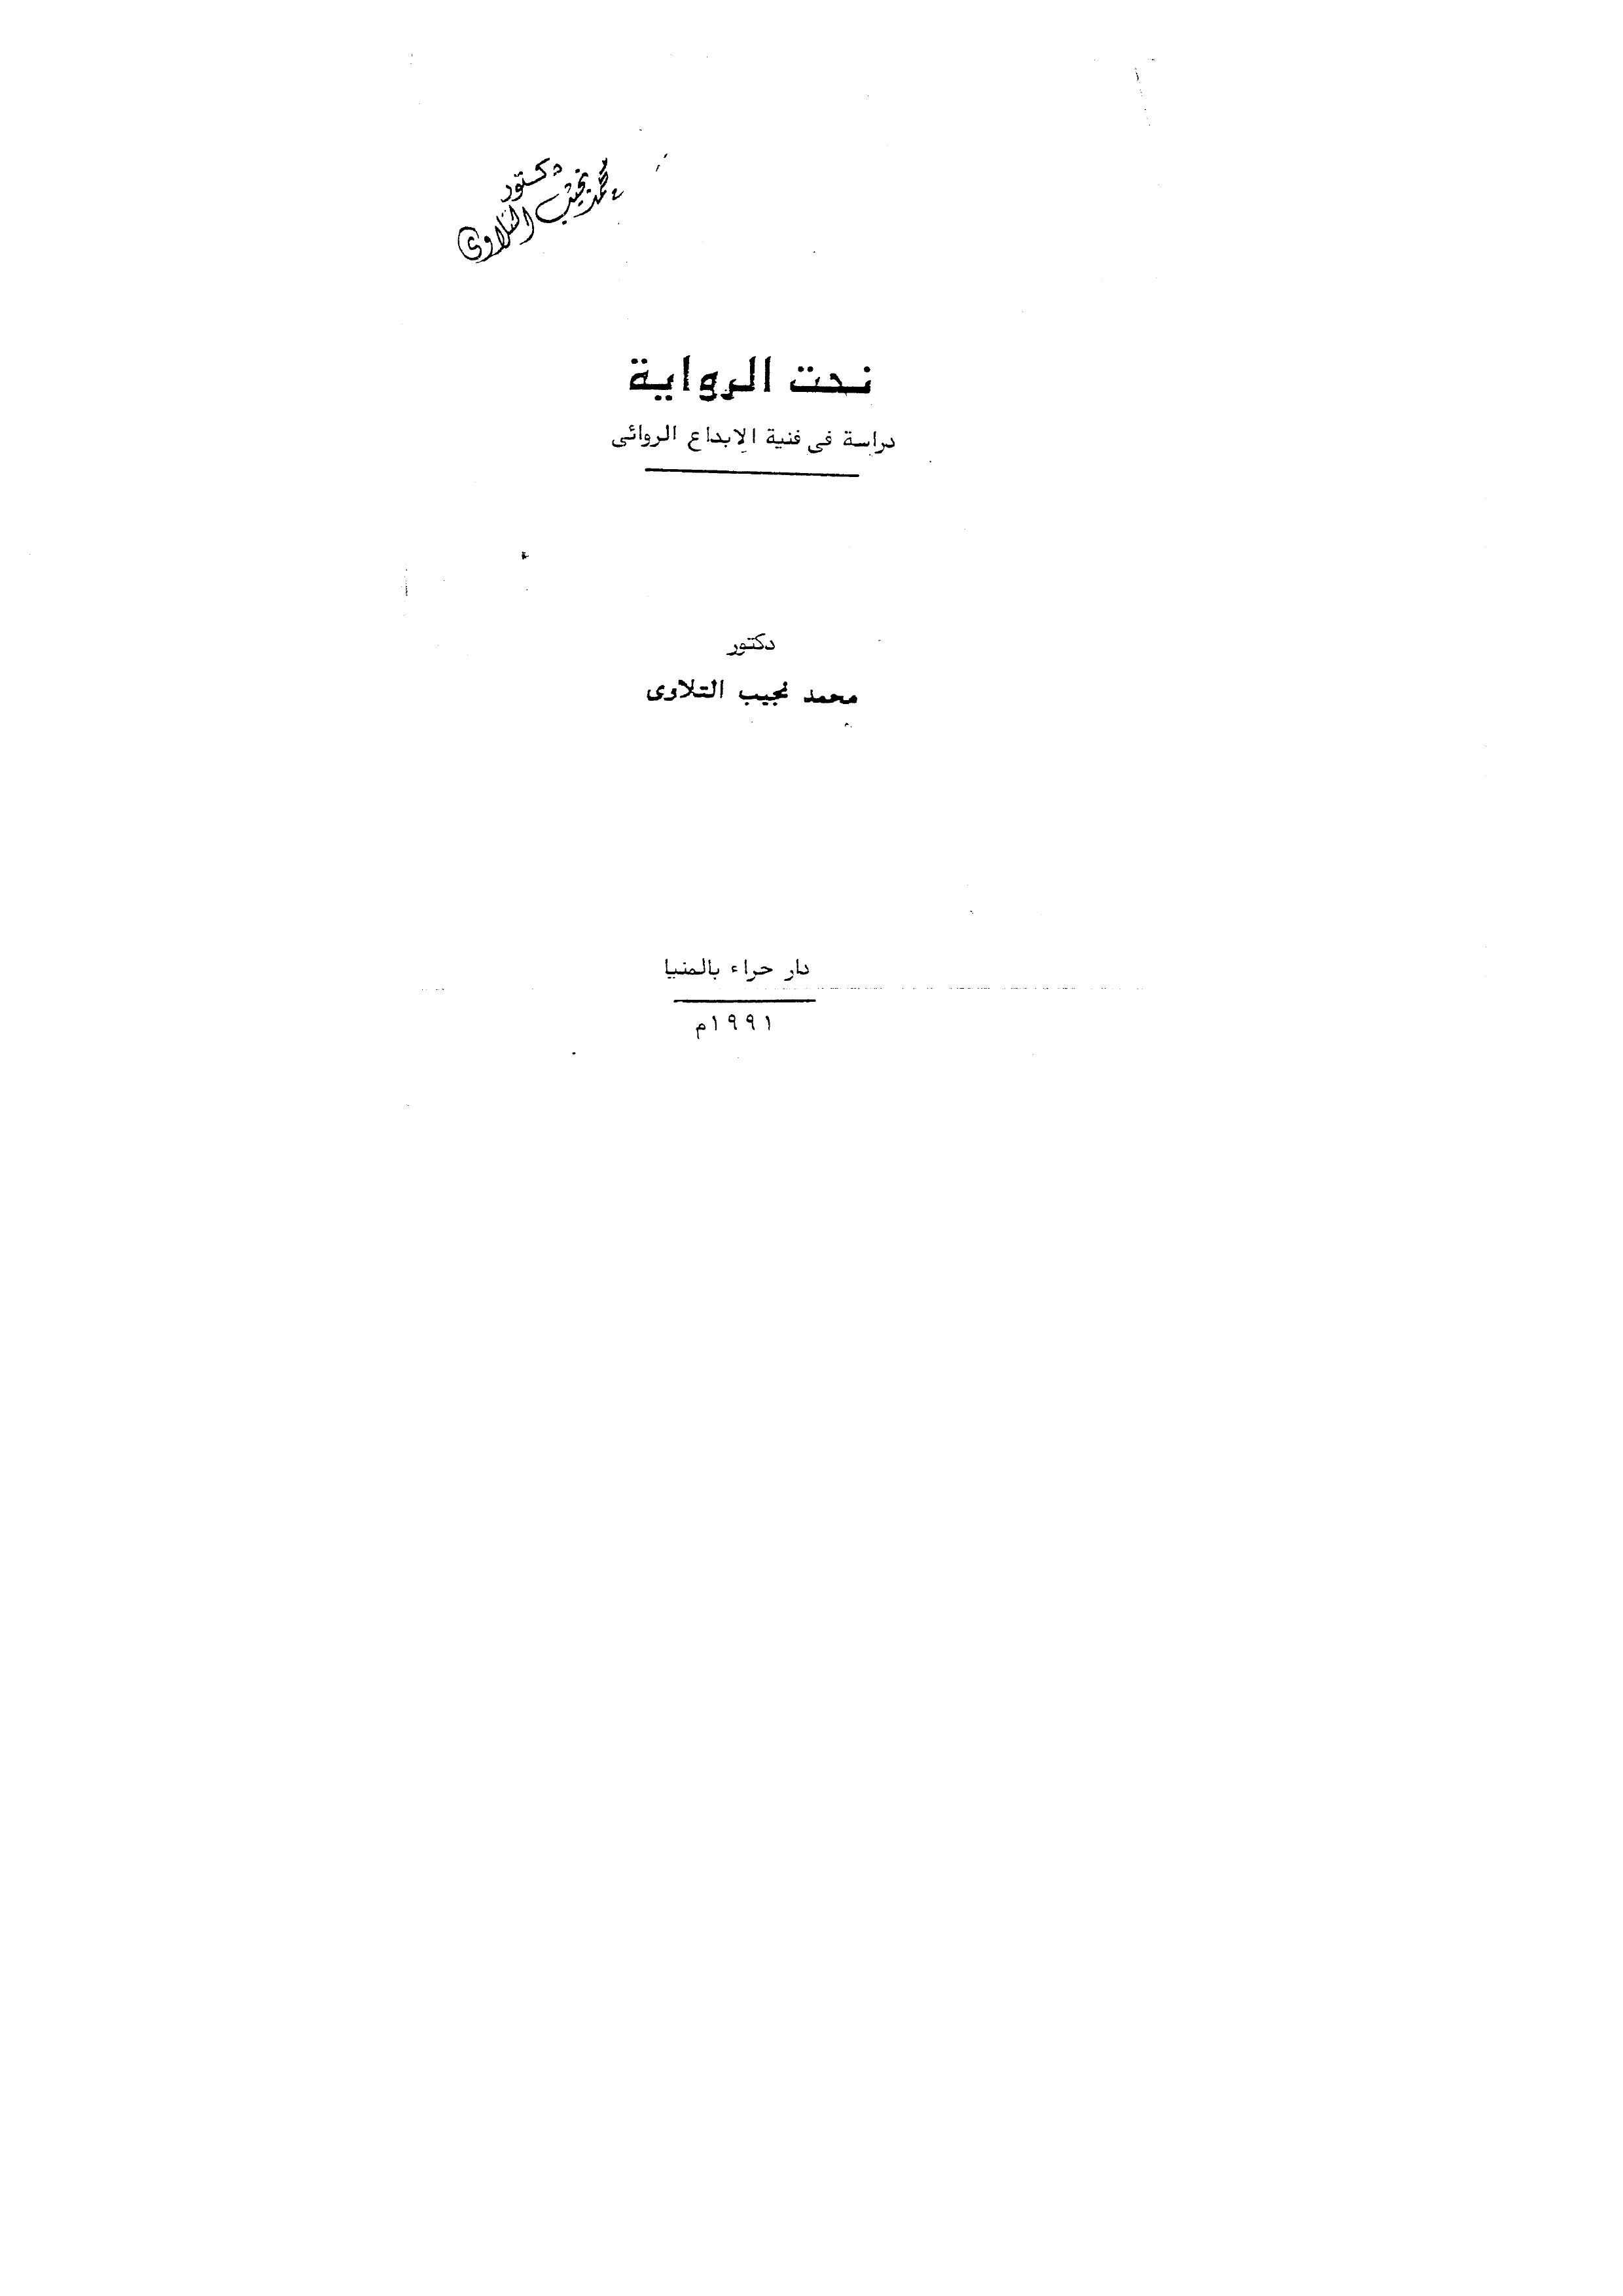 دكتور
محمد نجيب التلاوى
نحت الرواية
دراسة فى فنية الإبداع الروائى
دكتور
محمد نجيب التلاوى
دار حراء بالمنيا
١٩٩١م